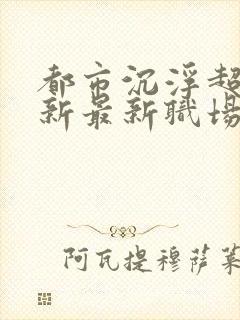 都市沉浮超
新最新職場
阿瓦提穆薩萊